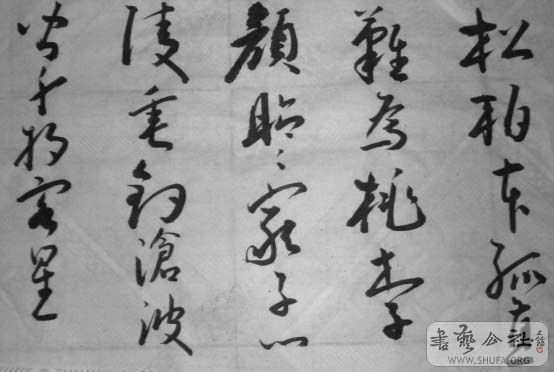 松柏本孤直
難為桃李
顏昭〻嚴子
陵垂釣滄波
間身將客星
書藝公社
WWW.SHUFA.ORG